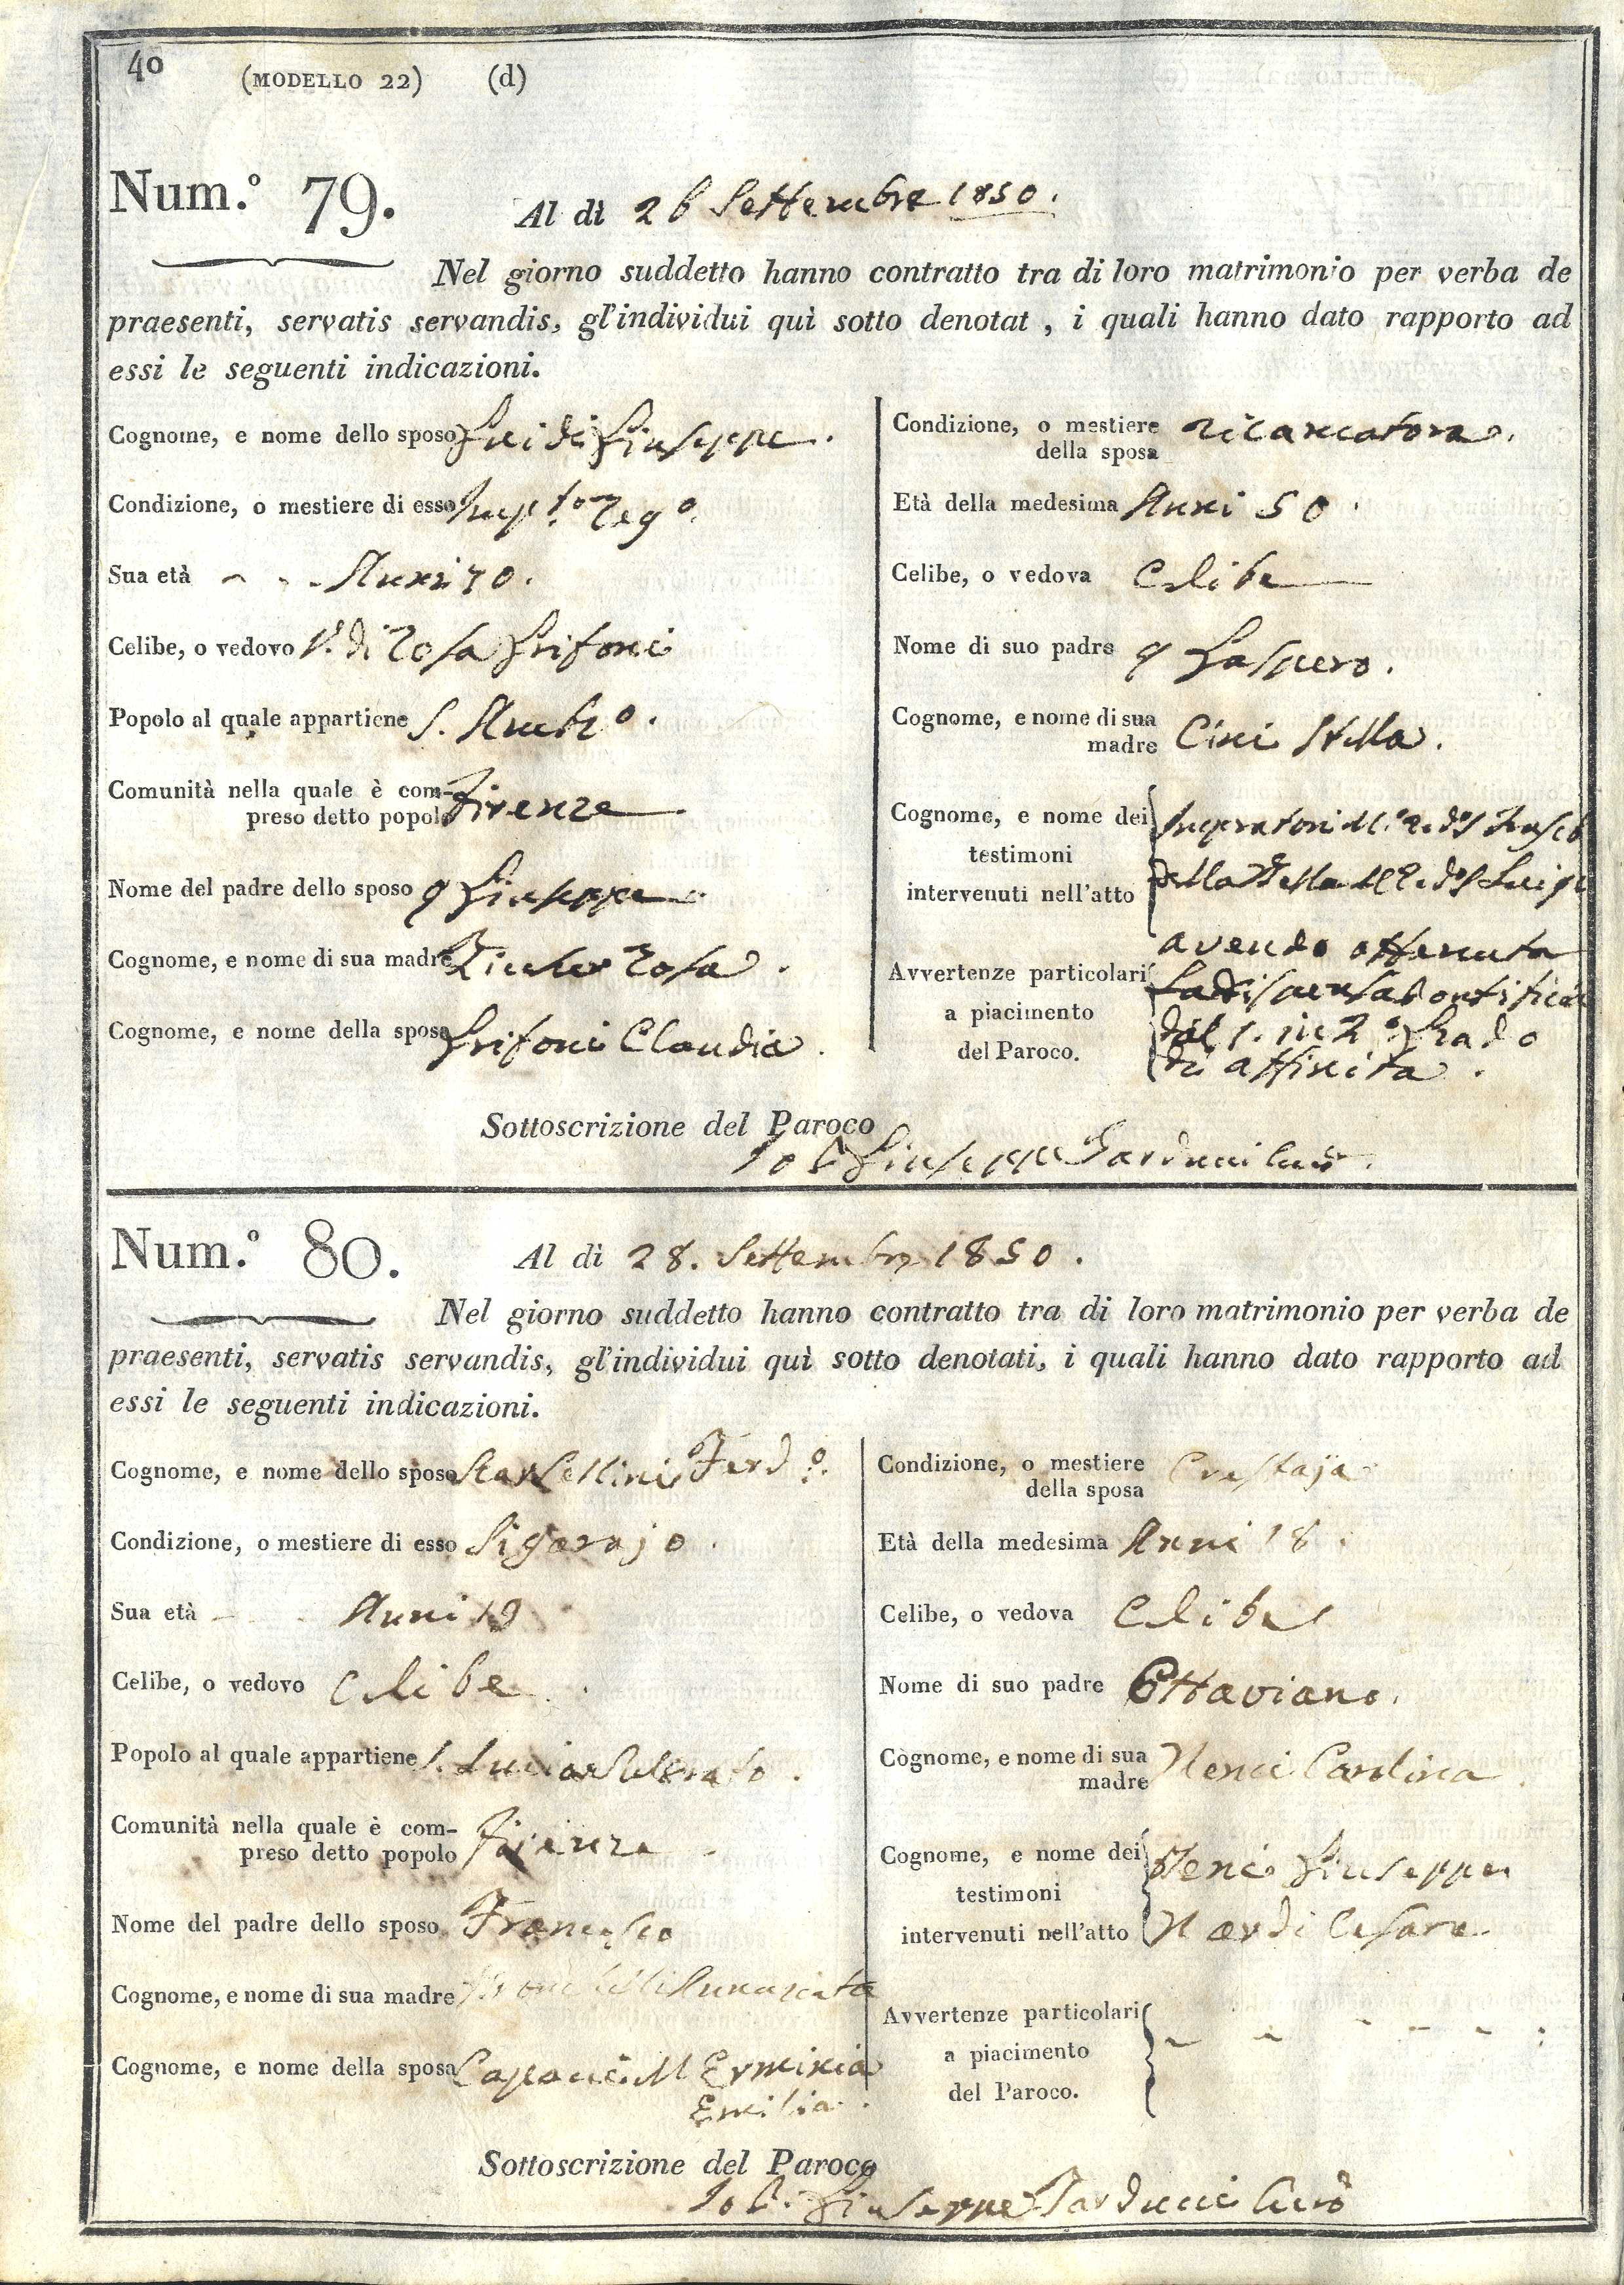 40
(MODELLO 22) (d)
Num.º 79.
Al dì 26 Settembre 1850.
Nel giorno suddetto hanno contratto tra di loro matrimonio per verba de
praesenti, servatis servandis, gl'individui quì sotto denotat , i quali hanno dato rapporto ad
essi le seguenti indicazioni.
Cognome, e nome dello sposo Guidi Giuseppe.
Condizione, o mestiere di esso Imp.to Reg.o
Sua età Anni 70.
Celibe, o vedovo V. di Rosa Grifoni
Popolo al quale appartiene S. Amb.o.
Comunità nella quale è com-
preso detto popolo Firenze
Nome del padre dello sposo q Giuseppe
Cognome, e nome di sua madre Rosa.
Cognome, e nome della sposa Grifoni Claudia.
Condizione, o mestiere
della sposa
Età della medesima Anni 50.
Celibe, o vedova Celibe
Nome di suo padre q Gaspero.
Cognome, e nome di sua
madre Cini Stella.
Cognome, e nome dei
testimoni
intervenuti nell'atto
Luigi
Avvertenze particolari
a piacimento
del Paroco.
avendo ottenuta
la dispensa Pontificia
dal 1. in 2.o Grado
di affinità.
Sottoscrizione del Paroco
Io P. Giuseppe Tarducci Curo
Num.º 80.
Al dì 28. Settembre 1850.
Nel giorno suddetto hanno contratto tra di loro matrimonio per verba de
praesenti, servatis servandis, gl'individui quì sotto denotati, i quali hanno dato rapporto ad
essi le seguenti indicazioni.
Cognome, e nome dello sposo Ferd.o.
Condizione, o mestiere di esso Sigarajo.
Sua età Anni 19
Celibe, o vedovo Celibe
Popolo al quale appartiene S. Lucia sul Prato.
Comunità nella quale è com-
preso detto popolo Firenze
Nome del padre dello sposo Francesco
Cognome, e nome di sua madre Annunziata
Cognome, e nome della sposa Caponi M Erminia
Emilia.
Condizione, o mestiere
della sposa Crestaja
Età della medesima Anni 18.
Celibe, o vedova Celibe
Nome di suo padre Ottaviano.
Cognome, e nome di sua
madre Nenci Carolina
Cognome, e nome dei
testimoni
intervenuti nell'atto
Nenci Giuseppe
Nardi Cesare
Avvertenze particolari
a piacimento
del Paroco.
Sottoscrizione del Paroco
Io P. Giuseppe Tarducci Curo